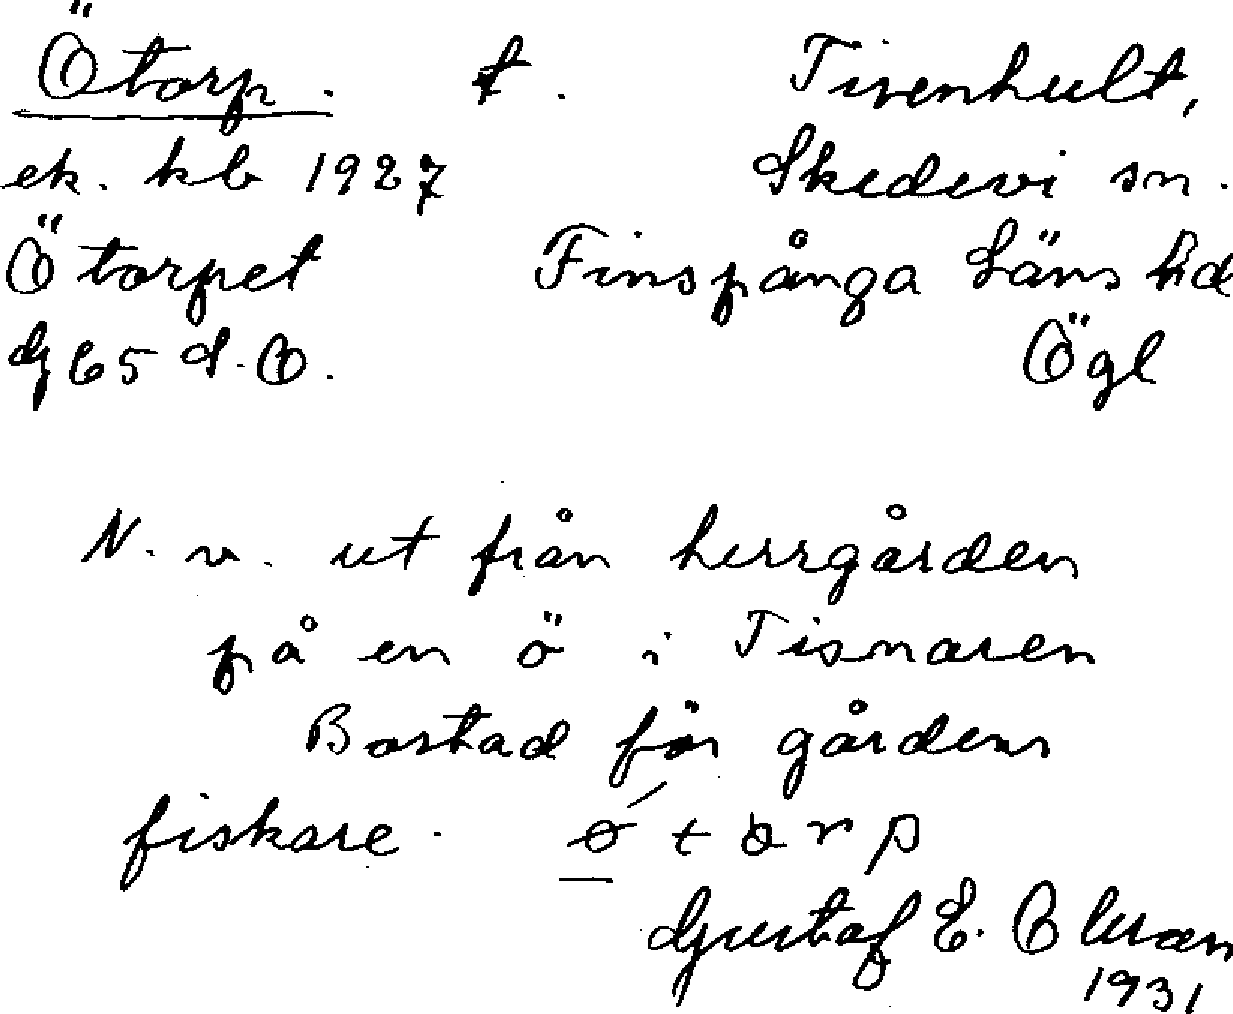 Ötorp. t. Tisenhult,
ek. kb 1927 Skedevi sn.
Ötorpet Finspånga Läns hd
dj 65 d.O. Ögl
N. v. ut från herrgården
på en ö i Tisnaren
Bostad för gårdens
fiskare. ǿtɒrp
Gustaf E. Olsson
1931